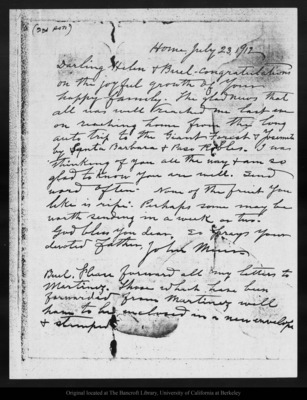 Home, July 23, 1912
Darling Helen & Buel - congratulations
on the joyful growth of your
happy family. The glad news that
all was well reached me last eve
on reaching home from the long
auto trip to the Giant Forest & Yosemite
by Santa Barbara & Paso Robles. I was
thinking of you all the way & am so
glad to know you are well. Send
word often. None of the fruit you
like is ripe. Perhaps some may be
worth sending in a week or two.
God bless you dear. So prays your
devoted father, John Muir
Buel. Please forward all my letters to
Martinez. Those which have been
forwarded from Martinez will
have to be enclosed in a new envelope
& stamped
Original located at The Bancroft Library, University of California at Berkeley